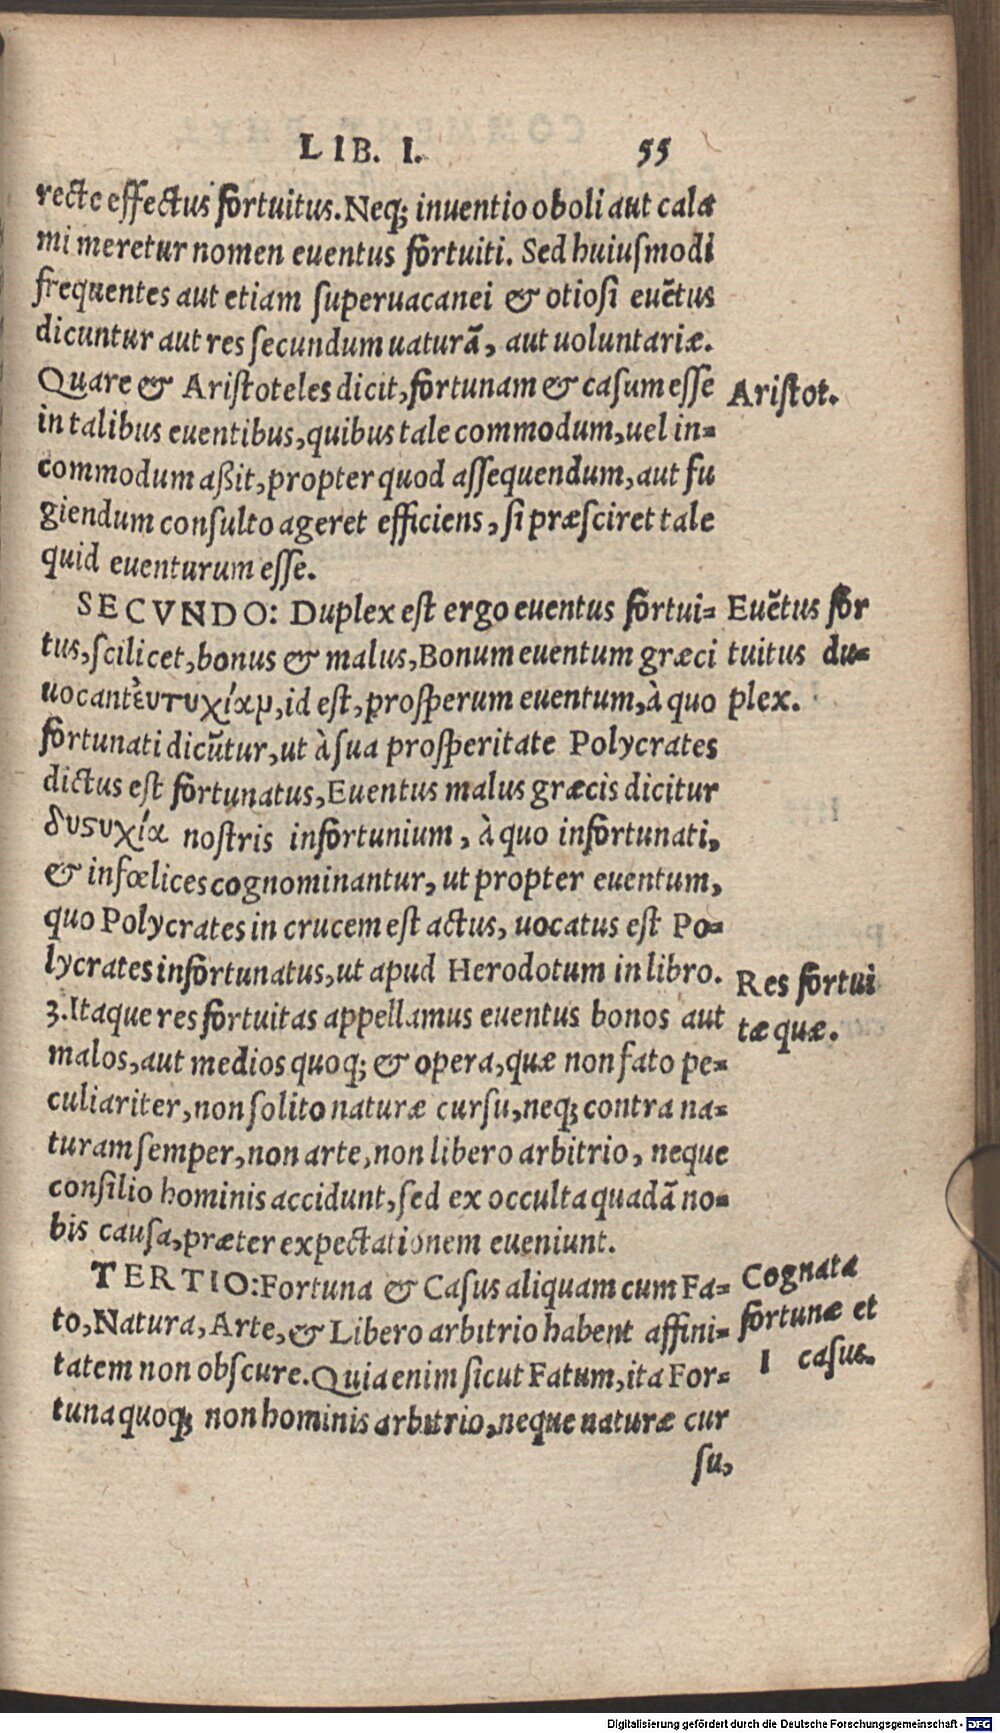 LIB. I. 55
recte effectus fortuitus. Neq; inuentio oboli aut cala
mi meretur nomen euentus fortuiti. Sed huiuſmodi
frequentes aut etiam ſuperuacanei & otioſi euẽtus
dicuntur aut res ſecundum naturã, aut uoluntariæ.
Quare & Ariſtoteles dicit, fortunam & caſum eſſe
Ariſtot.
in talibus euentibus, quibus tale commodum, uel in-
commodum aßit, propter quod aſſequendum, aut fu
giendum conſulto ageret efficiens, ſi præſciret tale
quid euenturum eſſe.
SECVNDO: Duplex eſt ergo euentus fortui-
Euẽtus for
tus, ſcilicet, bonus & malus, Bonum euentum græci
tuitus du-
uocant ἐυτυχίαμ, id eſt, proſperum euentum, à quo
plex.
fortunati dicũtur, ut à ſua proſperitate Polycrates
dictus eſt fortunatus, Euentus malus græcis dicitur
δυςυχία noſtris infortunium, à quo infortunati,
& infœlices cognominantur, ut propter euentum,
quo Polycrates in crucem eſt actus, uocatus eſt Po-
lycrates infortunatus, ut apud Herodotum in libro.
Res fortui
3. Itaque res fortuitas appellamus euentus bonos aut
tæ quæ.
malos, aut medios quoq; & opera, quæ non fato pe-
culiariter, non ſolito naturæ curſu, neq; contra na-
turam ſemper, non arte, non libero arbitrio, neque
conſilio hominis accidunt, ſed ex occulta quadã no-
bis cauſa, præter expectationem eueniunt.
TERTIO: Fortuna & Caſus aliquam cum Fa-
Cognata
to, Natura, Arte, & Libero arbitrio habent affini-
fortunæ et
tatem non obſcure. Quia enim ſicut Fatum, ita For-
I caſus.
tuna quoq; non hominis arbitrio, neque naturæ cur
ſu,
Digitalisierung gefördert durch die Deutsche Forschungsgemeinschaft - DFG